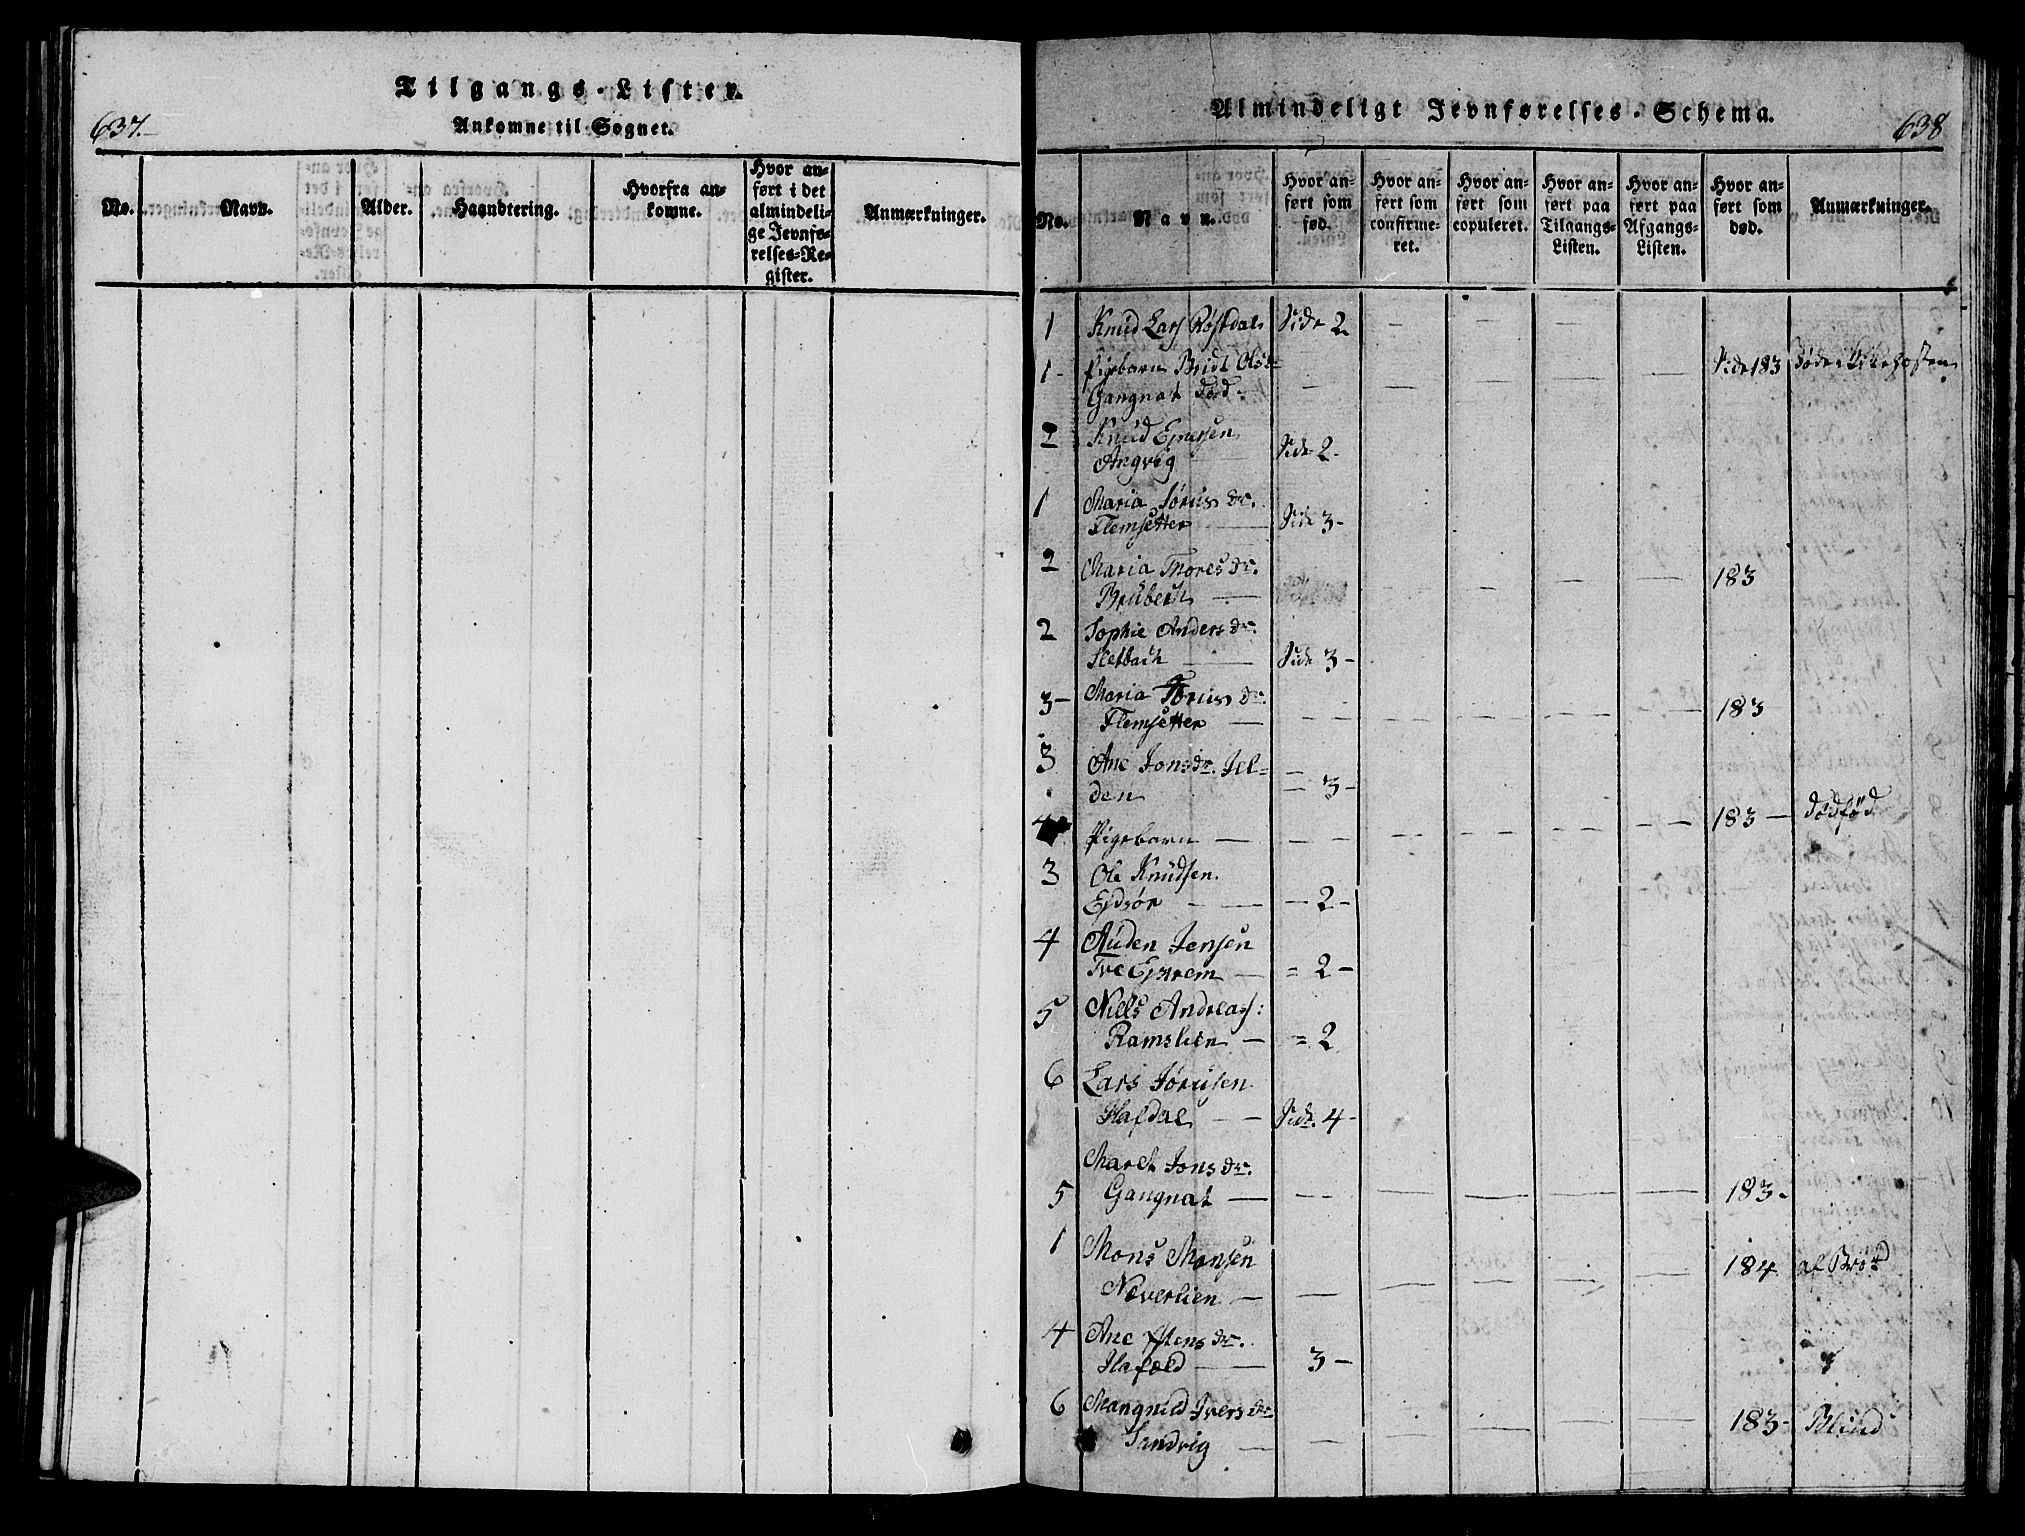 637.
Tilgangs-Lister.
Ankomne til Sognet.
No.
Navn.
Alder.
Haandtering.
Hvorfra an=
komne.
Hvor an=
ført i det
almindeli=
ge Jevnfø=
relses=Re=
gister.
Anmærkninger.
Almindeligt Jevnførelses-Schema.
638
No.
Navn.
Hvor an=
ført som
fød.
Hvor an=
ført som
confirme=
ret.
Hvor an=
ført som
copuleret.
Hvor an=
ført paa
Tilgangs=
Listen.
Hvor an=
ført paa
Afgangs=
Listen.
Hvor an=
ført som
død.
Anmærkninger.
1 Knud Lars Røsdal Side 2 — — —
1- Pigebarn Bridt Olsdr Side 183
Gangnat død. — — — — —
2 Knud
Angvig — Side 2.
1 Maria dr.
Flemsetter — Side 3-
2 Maria Thores dr. — — — — 183
— 
2 Sophie Anders dr.
— Side 3-
3- Maria dr. 183
Flemsetter — — — — — — —
3 Ane Jonsdr. Jel=
den = 3-
4 Pigebarn — — — — — — — 183 — dødfød
3 Ole Knudsen
Ejdsør — — 2-
4 Auden Jensen
— = 2-
5 Niels Andreas:
Ramslien — = 2
6 Lars
Hafdal — — Side 4-
Maret Jons dr.
5 Gangnat — — — — — — 183-
1 Mons Monsen 184
Neverlien — — — — — — —
4 Ane dr.
— 3-
6 Ivers dr 183- Blind
Sandvig — — — — — —